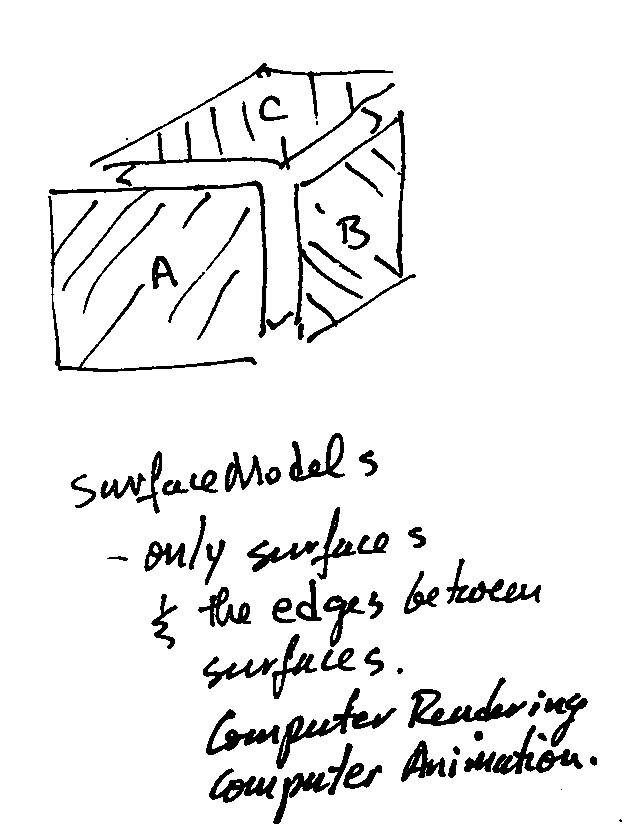 C
A
B
Surface Models
- only surfaces
& the edges between
surfaces.
Computer Rendering
Computer Animation.